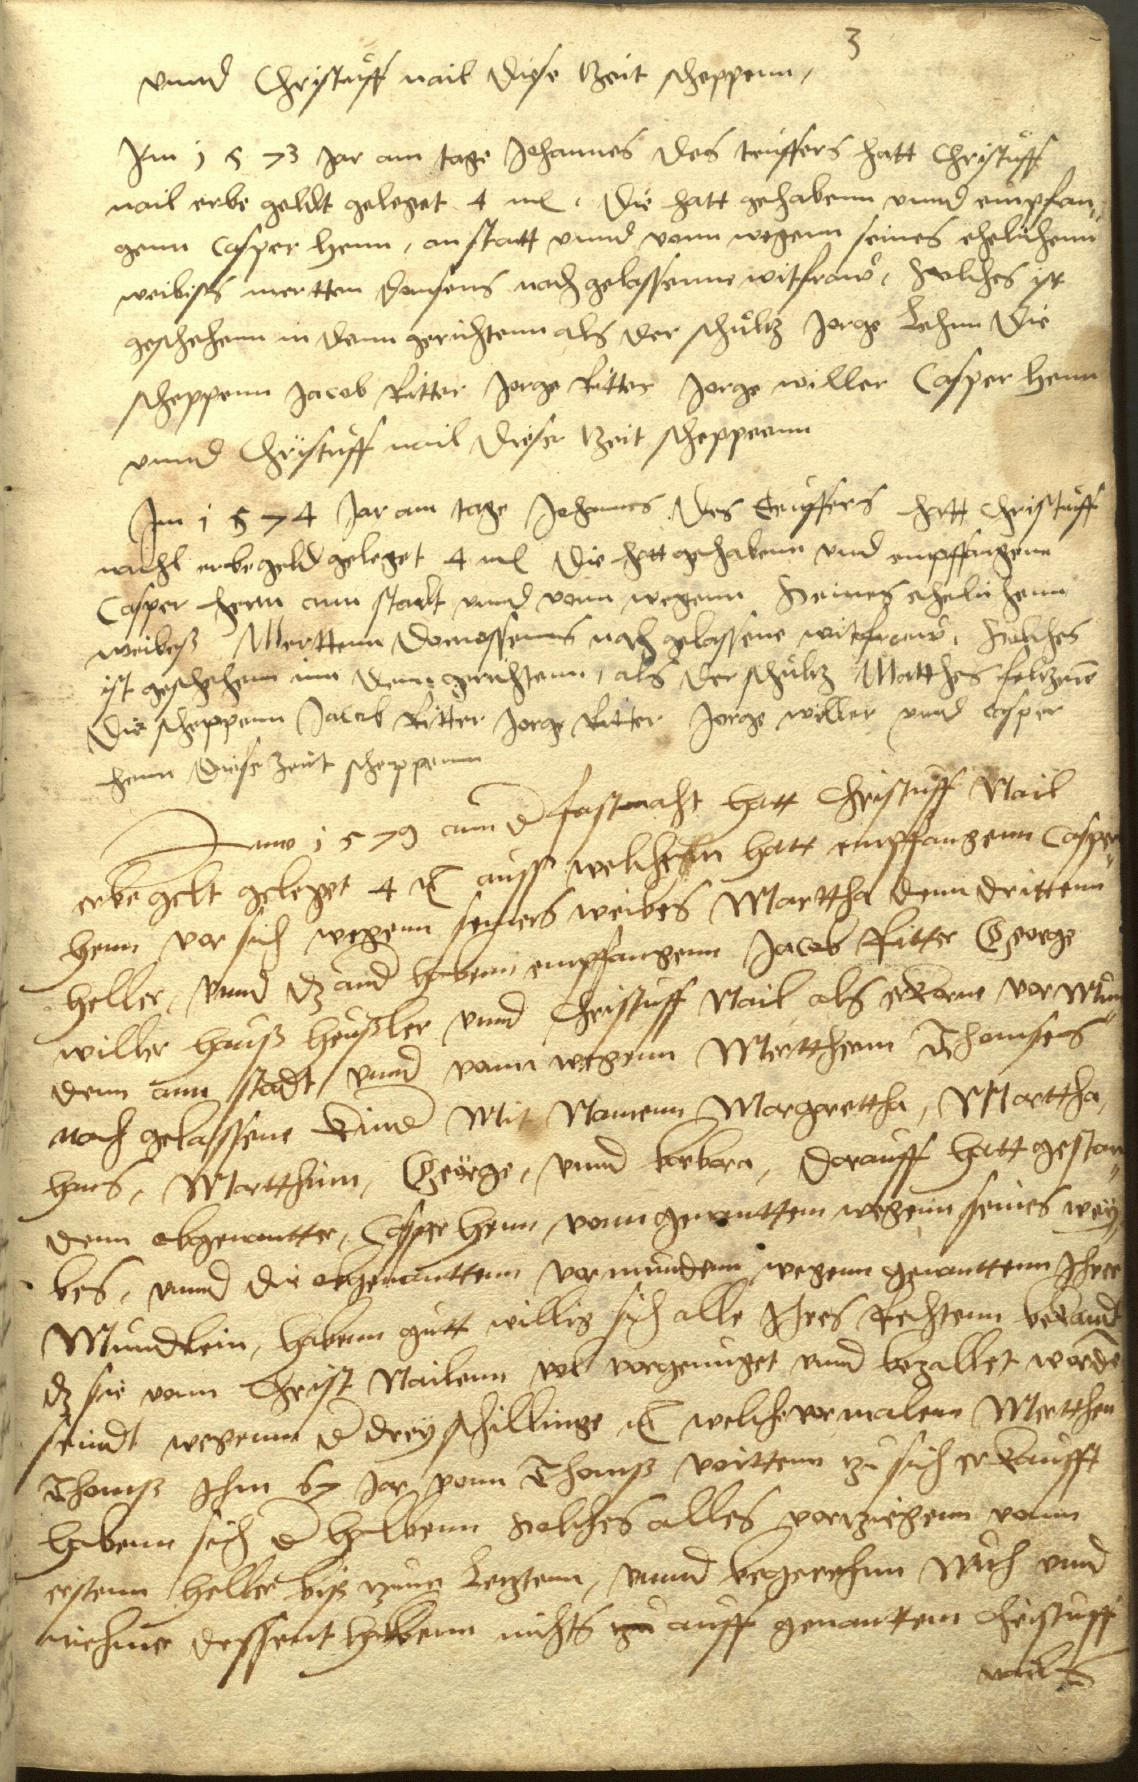 3
vnnd Christuff nail diese Zeit scheppenn,
Im 1573 Jar am tage Johannes des teuffers hatt Christuff
nail erbe geldt geleget 4 mk. die hatt gehabenn vnnd empfan„
genn Casper henn, anstatt vnnd vonn wegenn seines ehelichenn
weibiss mertten domsens nachgelassenne witfraw, solches ist
geschehenn in denn gerichtenn als der schultz Jorge Lehnn die
scheppenn Jacob Ritter Jorge Ritter Jorge willer Casper henn
vnnd Christuff nail dieser Zeit scheppenn
Im 1574 Jar am tage Johannes des Teuffers hatt Christuff
nachl erbegeld geleget 4 mk die hatt gehabenn vnd empffangenn
Casper henn ann stadt vnnd vonn wegenn seines ehelichenn
weibeß Merttenn nachgelassene witfraw, solches
ist geschehenn inn denn gerichtenn, als der schultz Matthes
die scheppenn Jacob Ritter Jorge Ritter Jorge willer vnnd Casper
henn diese Zeit scheppenn
Anno 1579 ann d fastnacht hatt Christuff Nail
erbegelt geleget 4 mk auss welchenn hatt empffangenn Casper
henn vor sich wegenn seiners weibes Marttha denn drittenn
heller, vnnd dz and habenn empffangenn Jacob Ritter George
willer hanß heußler vnnd Christuff Nail als erkorne vormun„
denn ann stadt vnnd vonn wegenn Merthenn Thomsens
nach gelassene kind Mit Namenn Margrettha, Marttha,
hans, Martthinn, George, vnnd barbara, dorauff hatt gestan„
denn obgenantter, Casper henn, vonn genanttenn wegenn seines wey„
bes, vnnd die obgenanttenn vormundenn wegenn genanttenn Ihrer
Mundlein, habenn gutt willig sich alle Ihres Rechtenn bekandt
dz sie vonn Christ Nailenn wol vorgenuget vnnd bezallet worde
seindt wegenn d drey schillinge mk welche vormalenn Mertthen
Thomß Ihm 67 Jar vonn Thomß zu sich erkaufft
habenn sich d halbenn solches alles vorziegenn vonn
erstenn heller biß zum Letztenn, vnnd begerenn Auch vnnd
niehmer dessent halbenn nichts zu auff genanttenn Christuff
nails